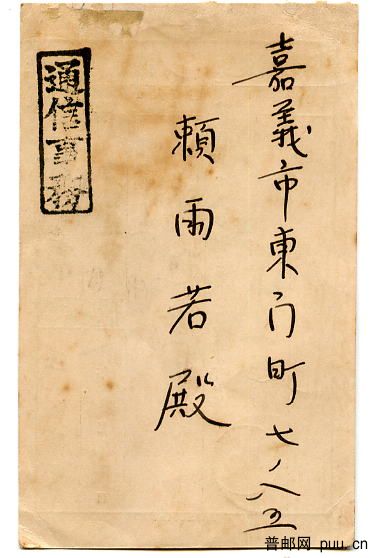 嘉義市東门町七ノ八五
頼雨若殿
通信事務
普邮网 puu.cn